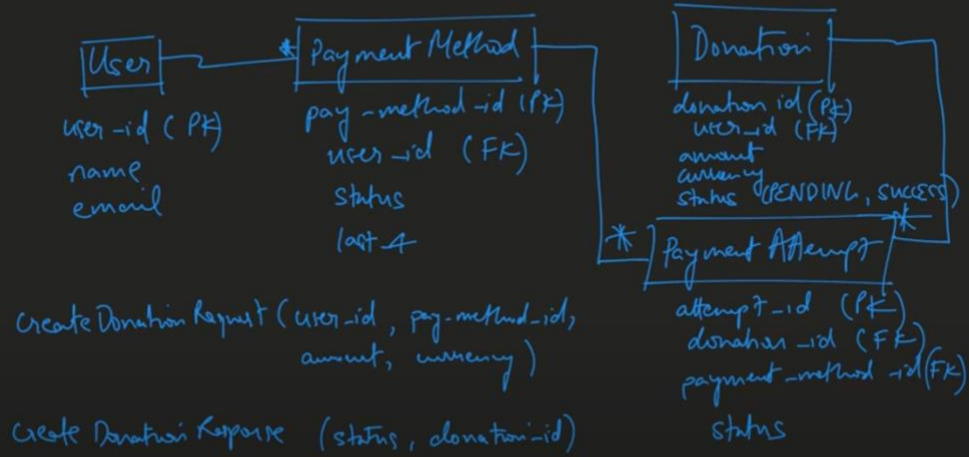 User
user-id (PK)
name
email
* Payment Method
pay-method-id (PK)
user-id (FK)
status
last 4
Donation
donation id (PK)
user-id (FK)
amount
currency
status (PENDING, SUCCESS)
* Payment Attempt *
attempt-id (PK)
donation-id (FK)
payment-method-id (FK)
status
Create Donation Request (user-id, pay-method-id,
amount, currency)
Create Donation Response (status, donation-id)